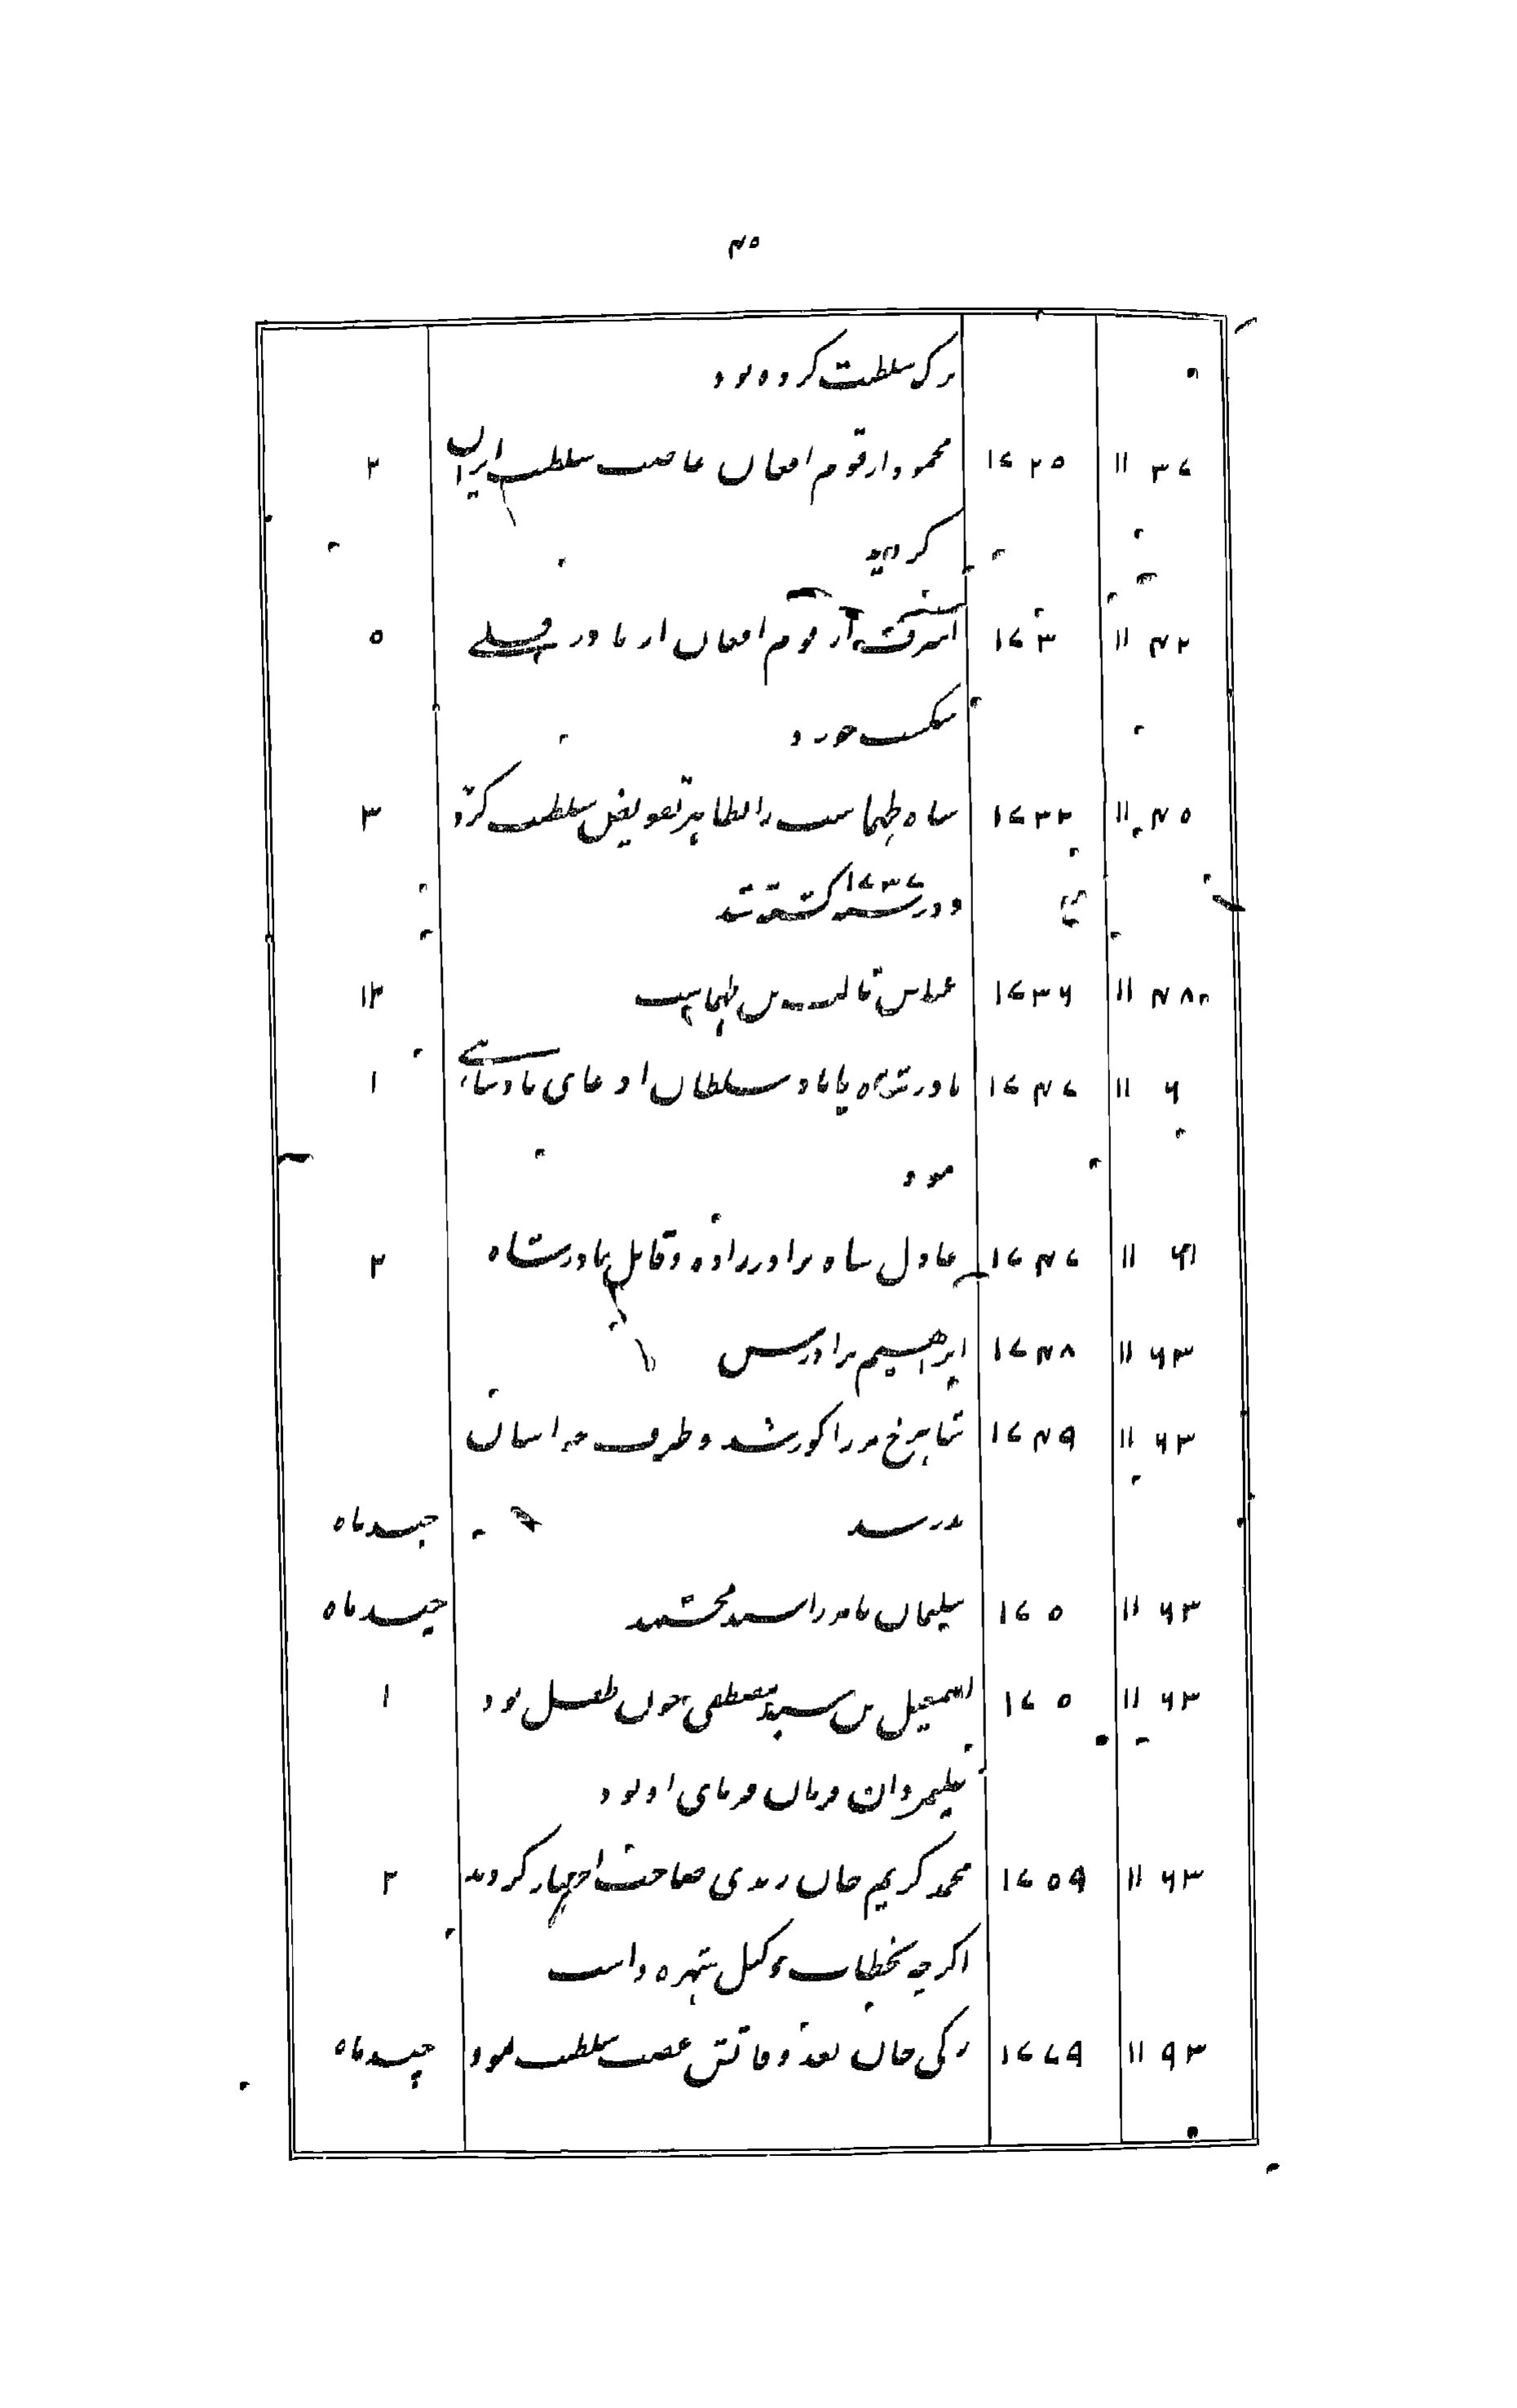 ۴۵
ترک سلطنت کرده بود
۱۱۳۷ ۱۷۲۵ محمود از قوم افغان غاصب سلطنت ایران ۲
گردید
۱۱۴۲ ۱۷۳ اشرف از قوم افغان از نادر قلی ۵
شکست خورد
۱۱۴۵ ۱۷۳۲ شاه طهماسب را بظاهر تفویض سلطنت کرد ۳
و در سنه ۱۷۳۷ کشته شد
۱۱۴۸ ۱۷۳۶ عباس ثالث بن طهماسب ۱۲
۱۱۶ ۱۷۴۷ نادر شاه با نام سلطان ادعای پادشاهی ۱
نمود
۱۱۶۱ ۱۷۴۷ عادل شاه برادرزاده و قاتل نادر شاه ۲
۱۱۶۳ ۱۷۴۸ ابراهیم برادرش
۱۱۶۳ ۱۷۴۹ شاهرخ مرزا کور شد و طرف خراسان
بدر شد چند ماه
۱۱۶۳ ۱۷۵ سلیمان مجتهد چند ماه
۱۱۶۳ ۱۷۵ اسمعیل بن سید مصطفی چون طفل بود ۱
علیمردان فرمان فرمای او بود
۱۱۶۳ ۱۷۵۹ محمد کریم خان زندی اختیار کردند ۲
اگرچه بخطاب وکیل شهره داشت
۱۱۹۳ ۱۷۷۹ زکی خان بعد وفاتش غصب سلطنت نمود چند ماه